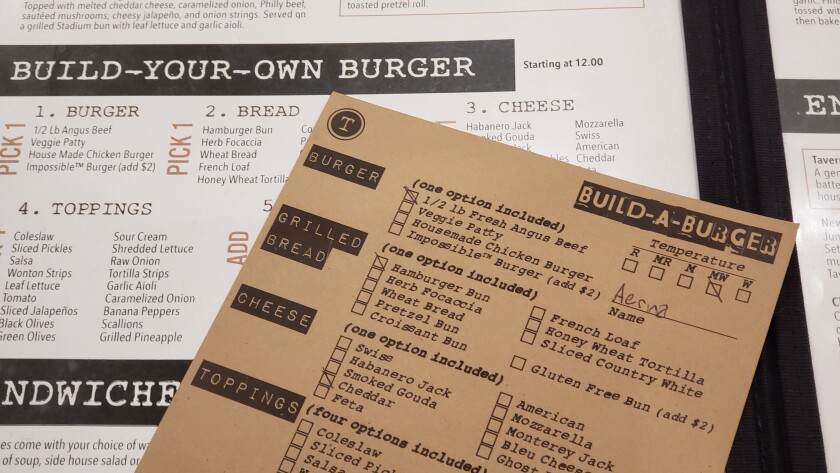 Topped with melted cheddar cheese, caramelized onion, Philly beef,
sautéed mushrooms, cheesy jalapeño, and onion strings. Served on
a grilled Stadium bun with leaf lettuce and garlic aioli.
toasted pretzel roll.
BUILD-YOUR-OWN BURGER
Starting at 12.00
1. BURGER
PICK 1
1/2 Lb Angus Beef
Veggie Patty
House Made Chicken Burger
Impossible™ Burger (add $2)
2. BREAD
PICK 1
Hamburger Bun
Herb Focaccia
Wheat Bread
French Loaf
Honey Wheat Tortilla
3. CHEESE
Habanero Jack
Smoked Gouda
Mozzarella
Swiss
American
Cheddar
4. TOPPINGS
Coleslaw
Sliced Pickles
Salsa
Wonton Strips
Leaf Lettuce
Tomato
Sliced Jalapeños
Black Olives
Green Olives
Sour Cream
Shredded Lettuce
Raw Onion
Tortilla Strips
Garlic Aioli
Caramelized Onion
Banana Peppers
Scallions
Grilled Pineapple
5
ADD
NDWICHE
es come with your choice of
of soup, side house salad or
T
BUILD-A-BURGER
BURGER
(one option included)
1/2 lb Fresh Angus Beef
Veggie Patty
Housemade Chicken Burger
Impossible™ Burger (add $2)
Temperature
R MR M MW W
Name
GRILLED
BREAD
(one option included)
Hamburger Bun
Herb Focaccia
Wheat Bread
Pretzel Bun
Croissant Bun
French Loaf
Honey Wheat Tortilla
Sliced Country White
Gluten Free Bun (add $2)
CHEESE
(one option included)
Swiss
Habanero Jack
Smoked Gouda
Cheddar
Feta
American
Mozzarella
Monterey Jack
Bleu Cheese
Ghost
TOPPINGS
(four options included)
Coleslaw
Sliced Pic
Salsa
garlic.
tossed wit
then bake
EN
Tavern
A gen
batte
hous
New